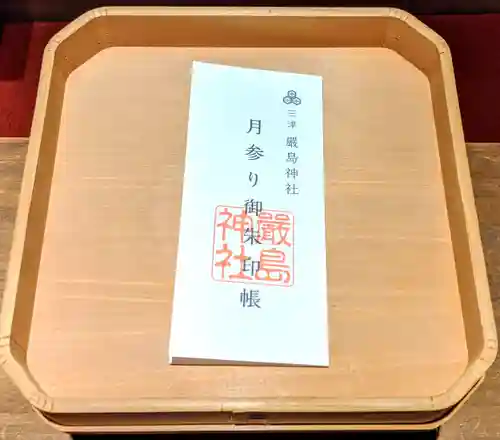 三津 厳島神社
月参り御朱印帳
嚴島
神社